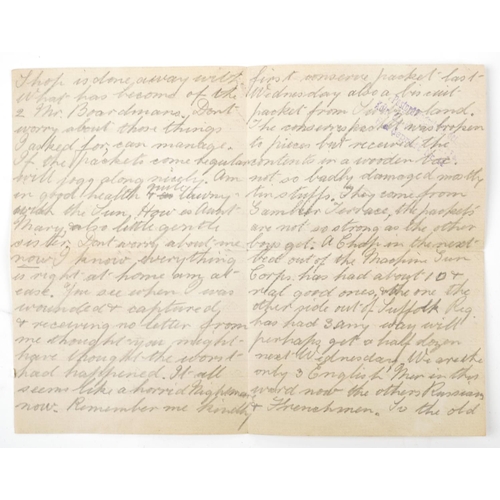 Shop is done away with.
What has become of the
2 Mr. Boardmans. Don't
worry about those things
I asked for, can manage.
If the packets come regular
will jogg along nicely. Am
in good health &
with the Sun. How is Aunt
Mary, also little gentle
sister. Dont worry about me
now I know everything
is right at home am at
ease. You see when I was
wounded & captured
& receiving no letter from
me thought you might
have thought the worst
had happened. It all
seems like a horrid Nightmare
now. Remember me kindly
first conserve packet last
Wednesday also a biscuit
packet from
The conserve packet was broken
to pieces but received the
contents in a wooden box
not so badly damaged mostly
tin stuffs. They came from
Terrace, the packets
are not so strong as the other
boys get. A Chap in the next
bed out of the Machine Gun
Corps. has had about 10 &
real good ones, & the one the
other side out of Suffolk Reg
has had 3 any way will
perhaps get a half dozen
next Wednesday. We are the
only 3 English Men in this
ward now the others Russians
& Frenchmen. Is the old